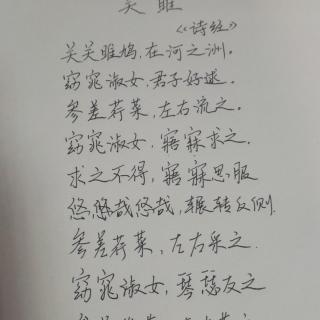 关雎
《诗经》
关关雎鸠,在河之洲。
窈窕淑女,君子好逑。
参差荇菜,左右流之。
窈窕淑女,寤寐求之。
求之不得,寤寐思服
悠悠哉悠哉,辗转反侧.
参差荇菜,左右采之.
窈窕淑女,琴瑟友之